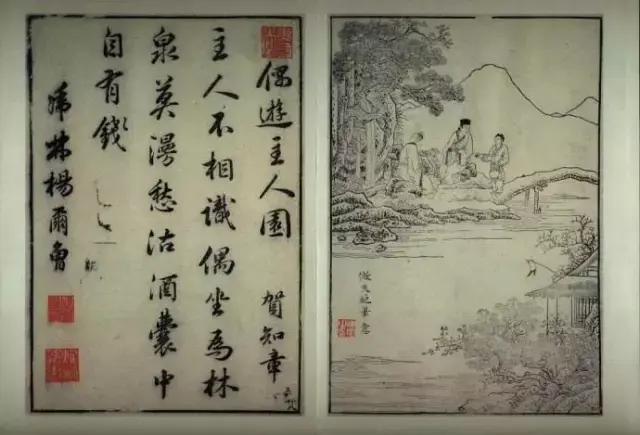 偶遊主人園 賀知章
主人不相識偶坐為林
泉莫漫愁沽酒囊中
自有錢
林楊爾曾
筆意